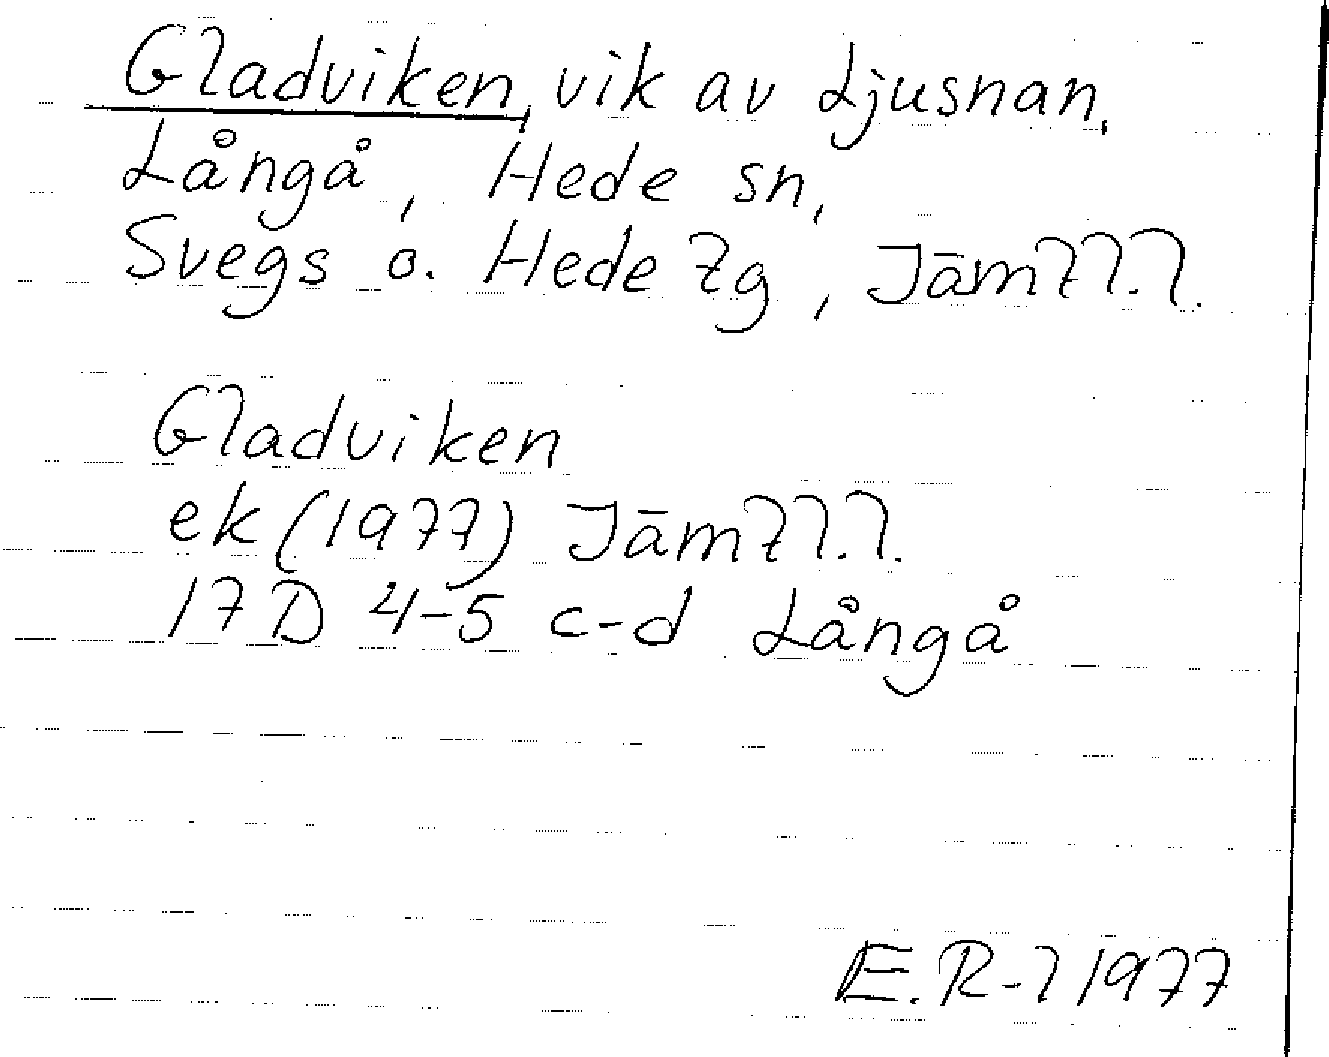 Gladviken, vik av Ljusnan,
Långå, Hede sn,
Svegs o. Hede tg, Jämtl.l.
Gladviken
ek (1977) Jämtl.l.
17D 4-5 c-d Långå
E.R-l 1977